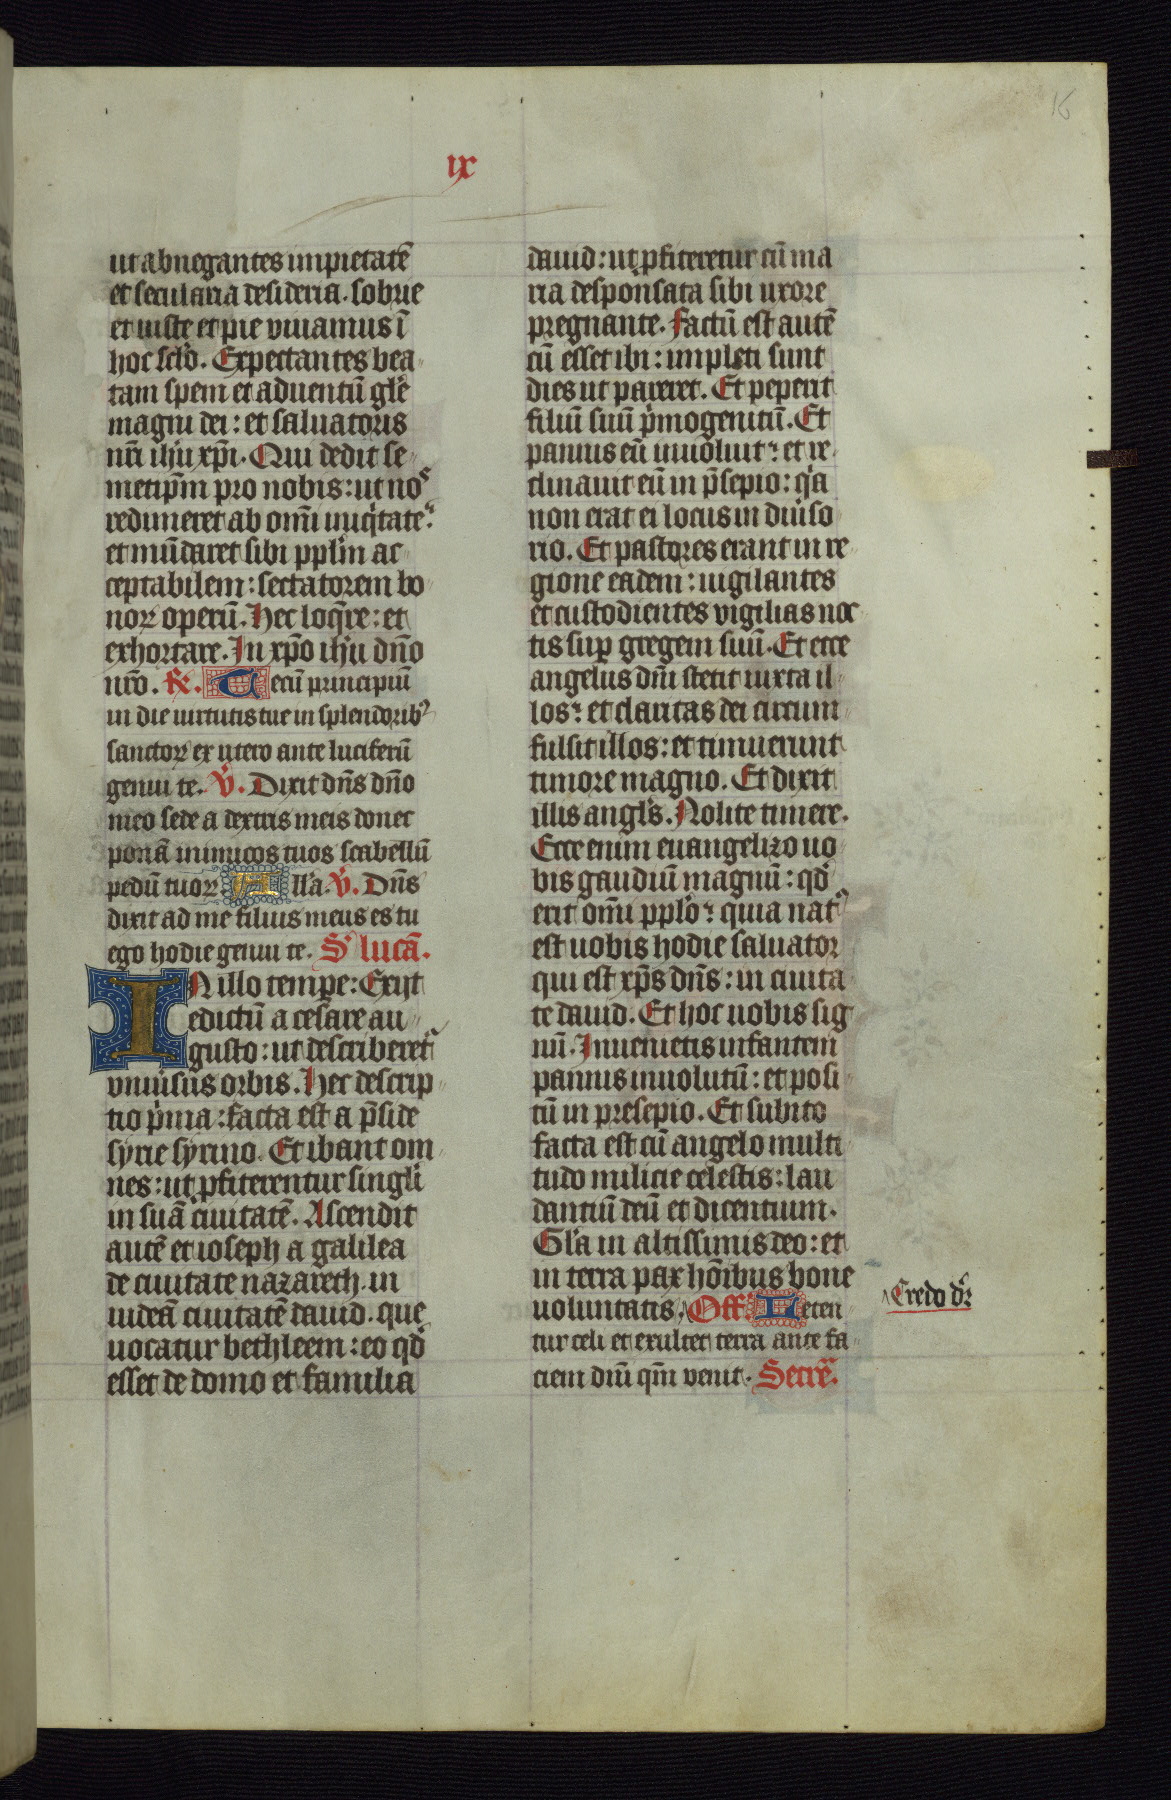 16
ix
ut abnegantes impietatē
et secularia desideria. sobrie
et iuste et pie viuamus ī
hoc sc̄lo. Expectantes bea
tam spem et aduentū gl̄e
magni dei: et saluatoris
nr̄i ih̄u xp̄i. Qui dedit se
metip̄m pro nobis: ut nos
redimeret ab om̄i iniq̇tate:
et mūdaret sibi pplm̄ ac
ceptabilem: sectatorem bo
noꝝ operū. Hec loq̄re: et
exhortare. In xp̄o ih̄u dn̄o
nr̄o. R. Tecū principiū
in die uirtutis tue in splendoribꝰ
sanctoꝝ ex utero ante luciferū
genui te. V. Dixit dn̄s dn̄o
meo sede a dextris meis donec
ponā inimicos tuos scabellū
pedū tuoꝝ. All̄a. V. Dn̄s
dixit ad me filius meus es tu
ego hodie genui te. S. lucā.
IN illo tempe: Exijt
edictū a cesare au
gusto: ut describeret᷑
vniūsus orbis. Hec descrip
tio ṗma: facta est a p̄side
syrie syrino. Et ibant om
nes: ut ꝓfiterentur singl̄i
in suā ciuitatē. Ascendit
autē et ioseph a galilea
de ciuitate nazareth. in
iudeā ciuitatē dauid. que
uocatur bethleem: eo qd̄
esset de domo et familia
dauid: ut ꝓfiteretur cū ma
ria desponsata sibi uxore
pregnante. Factū est autē
cū esset ibi: impleti sunt
dies ut pareret. Et peperit
filiū suū ṗmogenitū. Et
pannis eū inuoluit: et re
clinauit eū in p̄sepio: q̇a
non erat ei locus in diūso
rio. Et pastores erant in re
gione eadem: uigilantes
et custodientes vigilias noc
tis suꝑ gregem suū. Et ecce
angelus dn̄i stetit iuxta il
los: et claritas dei circum
fulsit illos: et timuerunt
timore magno. Et dixit
illis angl̄s. Nolite timere.
Ecce enim euangelizo uo
bis gaudiū magnū: qd̄
erit om̄i ppl̄o: quia natꝰ
est uobis hodie saluator
qui est xp̄s dn̄s: in ciuita
te dauid. Et hoc uobis sig
nū. Inuenietis infantem
pannis inuolutū: et posi
tū in presepio. Et subito
facta est cū angelo multi
tudo milicie celestis: lau
dantiū deū et dicentium.
Gl̄a in altissimis deo: et
in terra pax hōibus bone
uoluntatis. Off. Leten
tur celi et exultet terra ante fa
ciem dn̄i qm̄ venit. Secreᷓ.
Credo dr̄